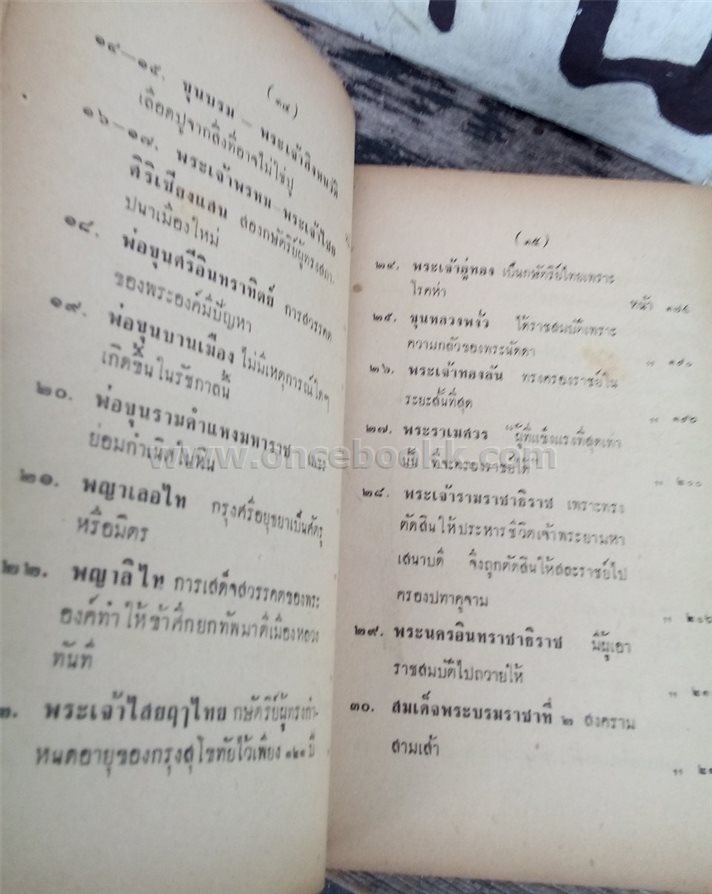 (๑๔)
๑๔—๑๕. ขุนบรม — พระเจ้าสิงหนวัติ
เลือดปูจากสิ่งที่อาจไม่ใช่ปู
๑๖—๑๗. พระเจ้าพรหม—พระเจ้าไชย
ศิริเชียงแสน สองกษัตริย์ผู้ทรงสถา-
ปนาเมืองใหม่
๑๘. พ่อขุนศรีอินทราทิตย์ การสวรรคต
ของพระองค์มีปัญหา
๑๙. พ่อขุนบานเมือง ไม่มีเหตุการณ์ใดๆ
เกิดขึ้นในรัชกาลนี้
๒๐. พ่อขุนรามคำแหงมหาราช
ย่อมกำเนิดในหิน
๒๑. พญาเลอไท กรุงศรีอยุธยาเป็นศัตรู
หรือมิตร
๒๒. พญาลิไท การเสด็จสวรรคตของพระ
องค์ทำให้ข้าศึกยกทัพมาตีเมืองหลวง
ทันที
๓. พระเจ้าไสยฤๅไทย กษัตริย์ผู้ทรงกำ-
หนดอายุของกรุงสุโขทัยไว้เพียง ๑๒๑ ปี
(๑๕)
๒๔. พระเจ้าอู่ทอง เป็นกษัตริย์ไทยเพราะ
โรคห่า
หน้า ๑๗๕
๒๕. ขุนหลวงพงั่ว ได้ราชสมบัติเพราะ
ความกลัวของพระนัดดา
" ๑๙๐
๒๖. พระเจ้าทองลัน ทรงครองราชย์ใน
ระยะสั้นที่สุด
" ๑๙๖
๒๗. พระราเมศวร "ผู้ที่แข็งแรงที่สุดเท่า
นั้น ที่จะครองราชย์ได้"
" ๒๐๐
๒๘. พระเจ้ารามราชาธิราช เพราะทรง
ตัดสินให้ประหารชีวิตเจ้าพระยามหา
เสนาบดี จึงถูกตัดสินให้สละราชย์ไป
ครองปทาคูจาม
" ๒๐๖
๒๙. พระนครอินทราชาธิราช มีผู้เอา
ราชสมบัติไปถวายให้
" ๒๑
๓๐. สมเด็จพระบรมราชาที่ ๒ สงคราม
สามเส้า
" ๒๑
www.oncebookk.com